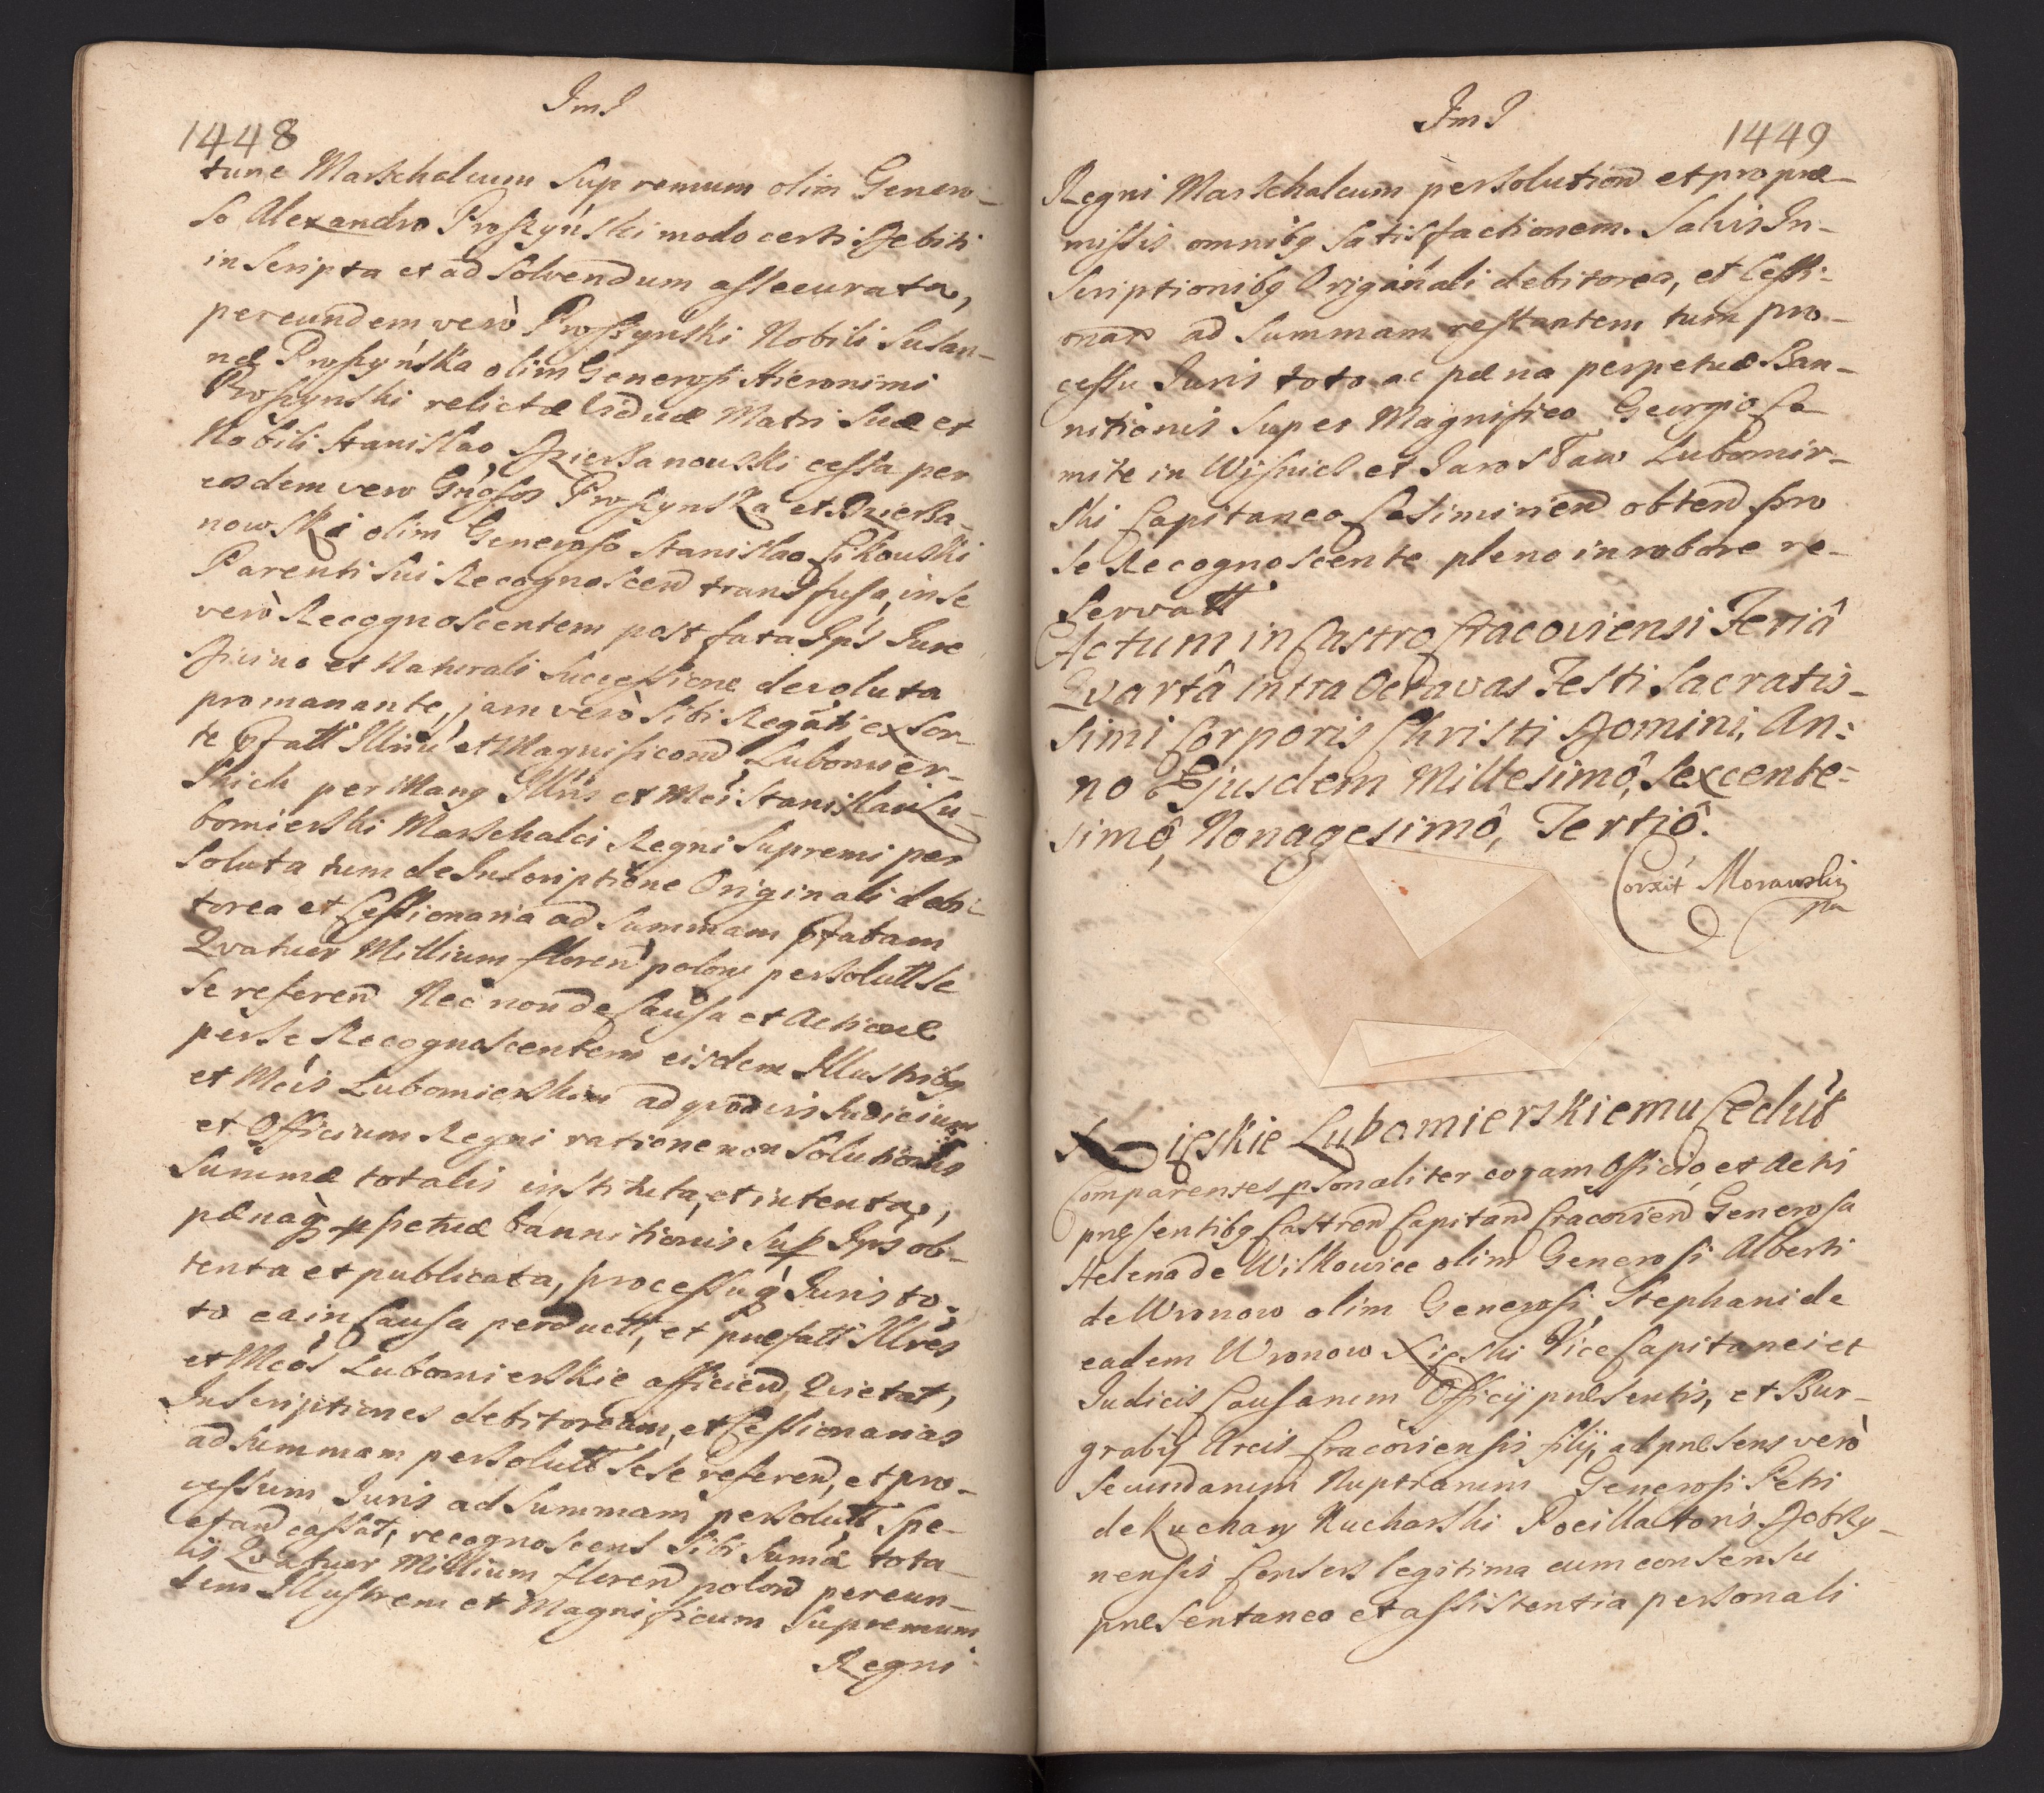 JmJ
1448
tunc Marschalcum Supremum olim Genero-
so Alexandro Proszyński modo certi Debiti
inscripta et ad solvendum assecurata,
per eundem verò Proszynski Nobili Susan-
næ Proszyńska olim Generosi Hieronimi
Proszynski relictæ Viduæ Matri suæ et
Nobili Stanislao Dzierzanouski cessa per
eosdem vero Gnosos Proszynska et Dzierza-
nowski olim Generoso Stanislao Cikouski
Parenti sui Recognoscen transfusa, in se
verò Recognoscentem post fata Ips Jure
Divino et Naturali successione devoluta
promanante, jam verò sibi Regnti ex sor-
te pfatt Illriu et Magnificor Lubomier-
skich per Mang Illris et Mci Stanislai Lu-
bomierski Marschalci Regni Supremi per
soluta tum de Inscriptione Originali debi-
torea et Cessionaria ad Summam pfatam
Qvatuor Millium floren polon persolutt se
se referen Nec non de Causa et Actione
per se Recognoscentem eisdem Illustribg
et Mcis Lubomierskim ad qvod vis Judicium
et Officium Regni ratione non solutionis
Summæ totalis instituta, et intenta,
pænaq ppetuæ bannitionis sup Ips ob-
tenta et publicata, processuq Juris to-
to ea in Causa perductt, et præfatt Illres
et Mcos Lubomierskie afficien, Qvietat,
Inscriptiones debitoream, et Cessionarias
ad summam persolutt sese referen, et pro-
cessum Juris ad Summam persolutt Spe-
ctan cassat, recognoscens sibi sumæ tota-
lis Qvatuor Millium floren polon per eun-
dem Illustrem et Magnificum Supremum
Regni
JmJ
1449
Regni Marschalcum persolution et pro præ-
missis omnibg satisfactionem. Salvis In-
scriptionibg Originali debitorea, et Cessi-
onar ad Summam restantem tum pro-
cessu Juris toto ac pæna perpetuæ Ban-
nitionis super Magnifico Georgio Co-
mite in Wisnicz et Jarosław Lubomir-
ski Capitaneo Casimirien obten pro
se Recognoscente pleno in robore re-
servatt
Actum in Castro Cracoviensi Feriâ
Qvartâ intra Octavas Festi Sacratis-
simi Corporis Christi Domini, An:
no Ejusdem Millesimô, Sexcente-
simô, Nonagesimô, Tertiô.
Corxit Morawski
pa
Xięskie Lubomierskiemu Cedut
Comparentes psonaliter coram Officio, et Actis
præsentibg Castren Capitan Cracovien Generosa
Helena de Wilkowice olim Generosi Alberti
de Wronow olim Generosi Stephani de
eadem Wronow Xięski Vice Capitanei et
Judicis Causarum Officij præsentis, et Bur-
grabij Arcis Cracoviensis filij, ad præsens verò
Secundarum Nuptiarum Generosi Petri
de Kuchary Kucharski Pocillatoris Dobrzy-
nensis Consors legitima cum consensu
præsentaneo et assistentia personali